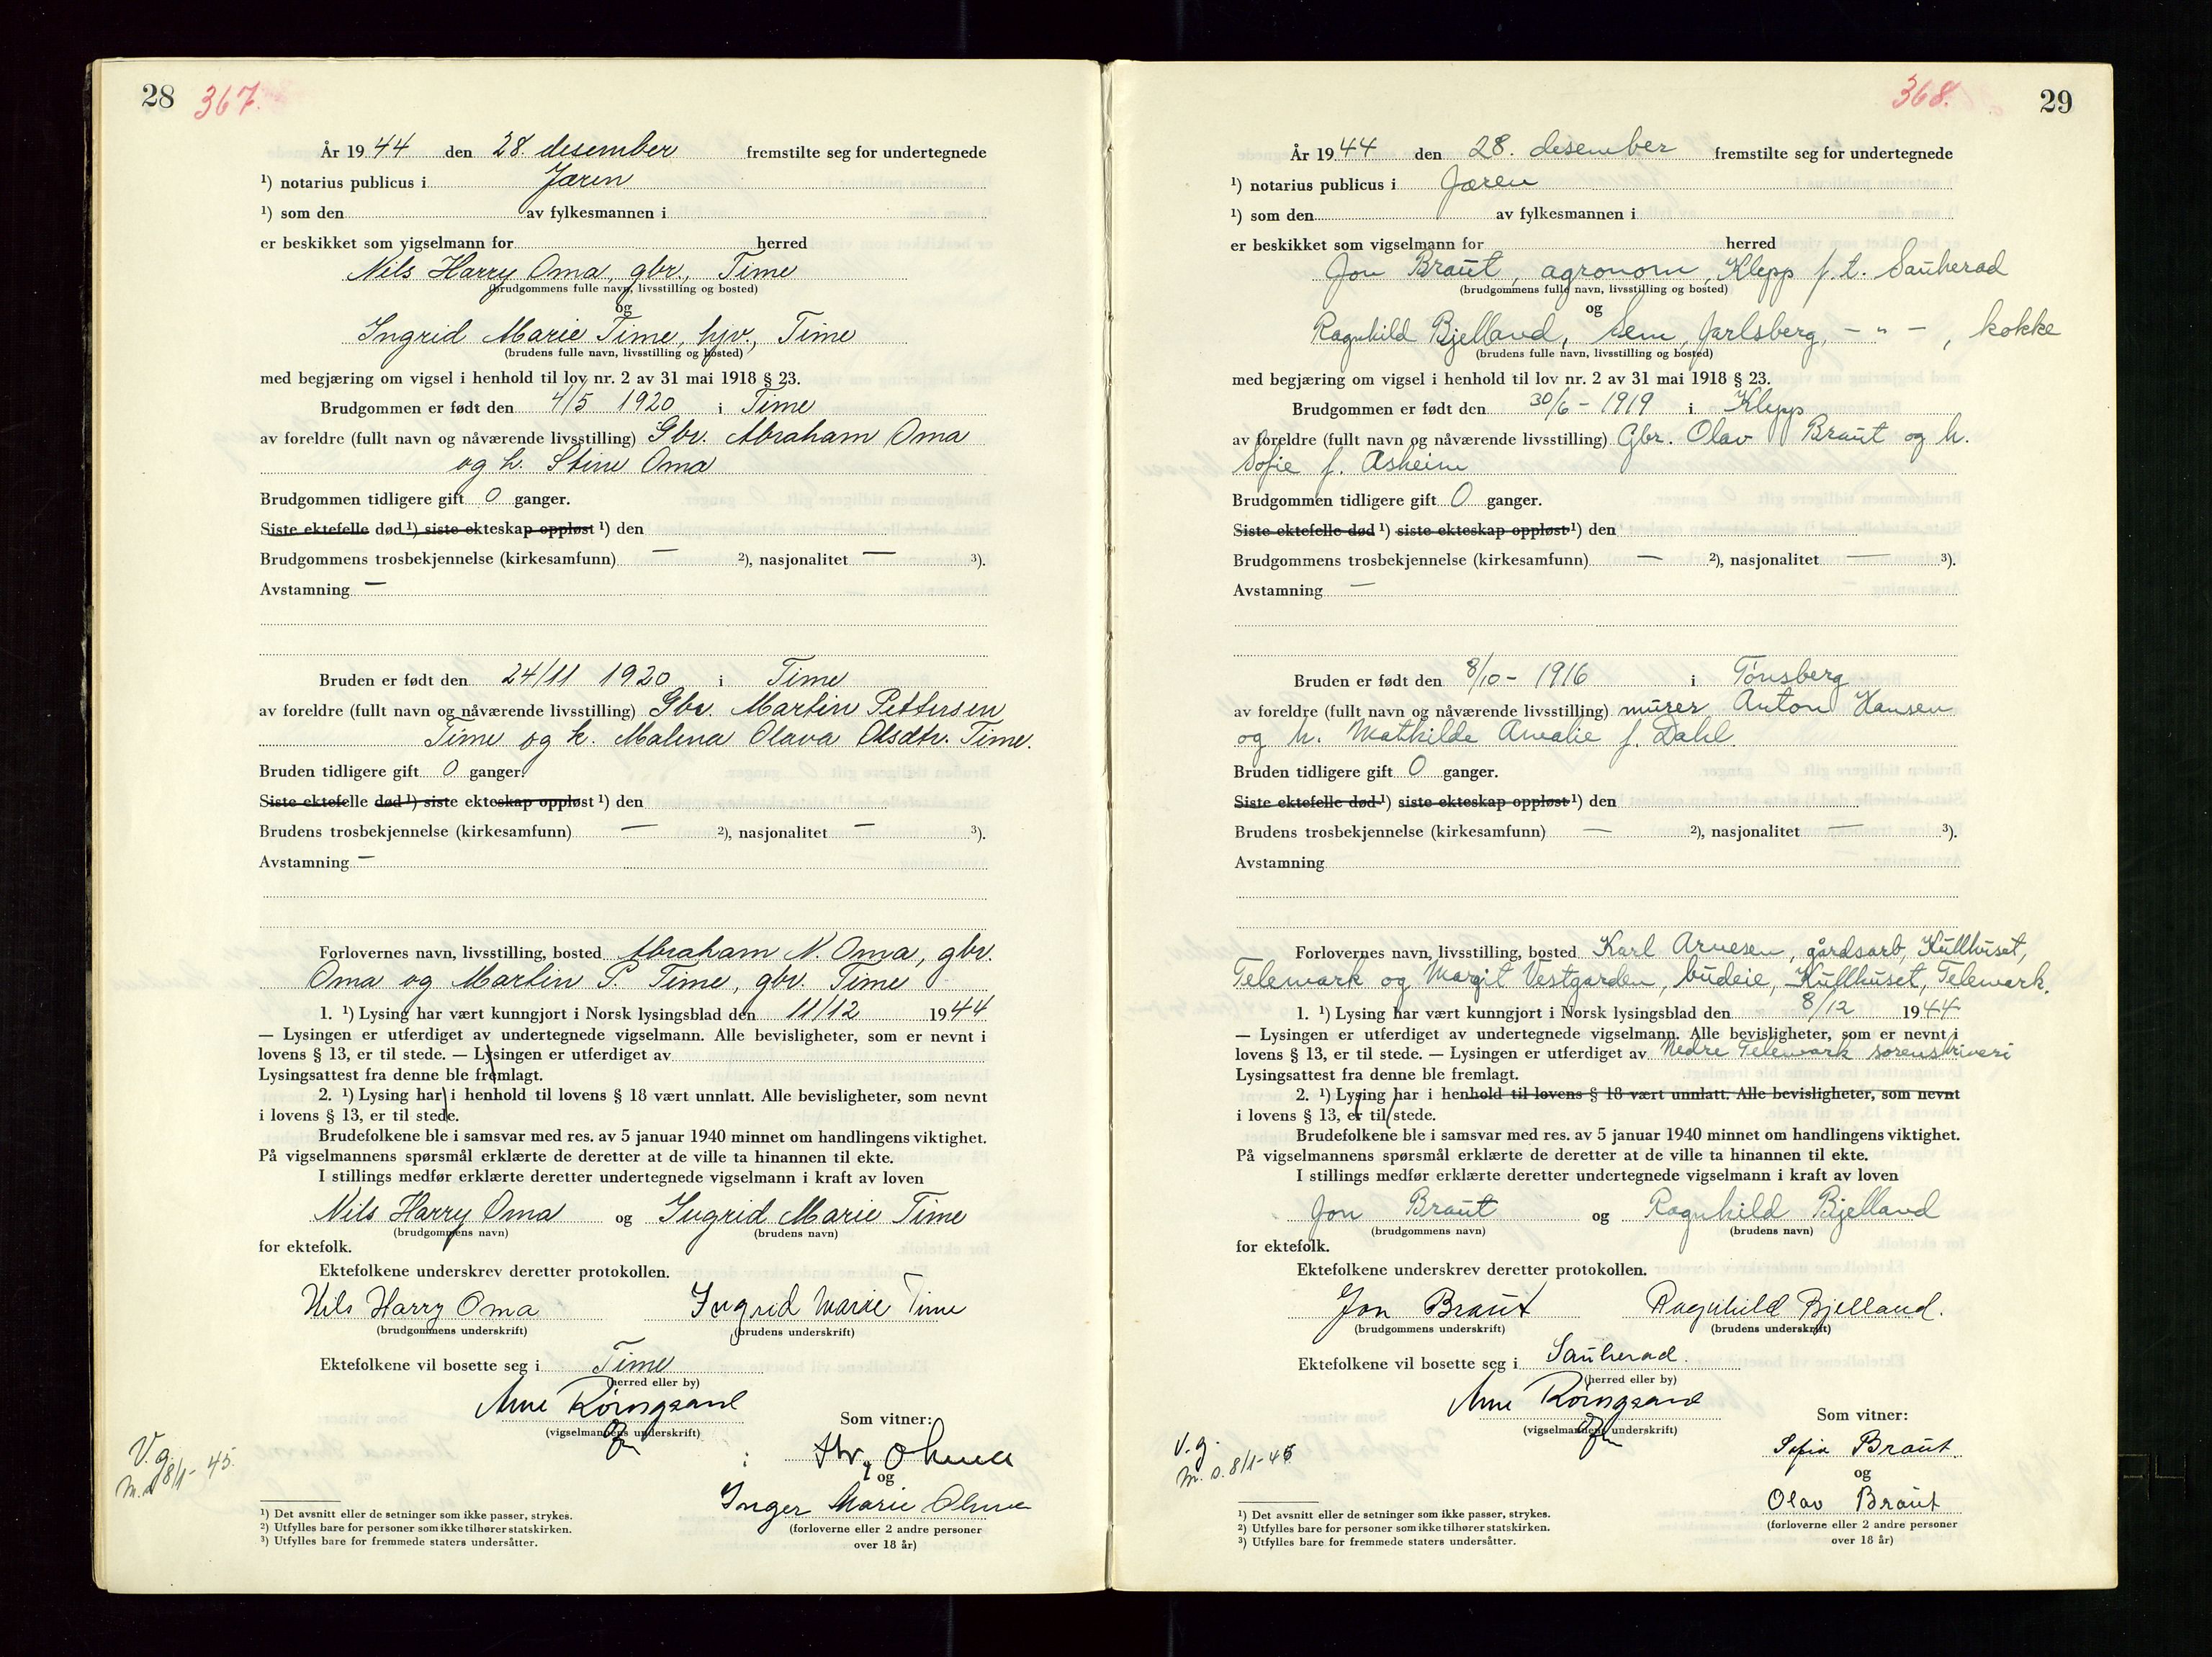 28 367.
År 1944 den 28. desember fremstilte seg for undertegnede
¹) notarius publicus i Jæren
¹) som den av fylkesmannen i
er beskikket som vigselmann for herred
Nils Harry Oma, gbr., Time
(brudgommens fulle navn, livsstilling og bosted)
og
Ingrid Marie Time, hjv., Time
(brudens fulle navn, livsstilling og bosted)
med begjæring om vigsel i henhold til lov nr. 2 av 31 mai 1918 § 23.
Brudgommen er født den 4/5 1920 i Time
av foreldre (fullt navn og nåværende livsstilling) Gbr. Abraham Oma
og h. Stine Oma
Brudgommen tidligere gift 0 ganger.
Siste ektefelle død ¹) siste ekteskap oppløst ¹) den
Brudgommens trosbekjennelse (kirkesamfunn) — ²), nasjonalitet — ³).
Avstamning —
Bruden er født den 24/11 1920 i Time
av foreldre (fullt navn og nåværende livsstilling) Gbr. Martin Pettersen
Time og h. Malena Olava Olsdtr. Time.
Bruden tidligere gift 0 ganger.
Siste ektefelle død ¹) siste ekteskap oppløst ¹) den
Brudens trosbekjennelse (kirkesamfunn) — ²), nasjonalitet — ³).
Avstamning —
Forlovernes navn, livsstilling, bosted Abraham N. Oma, gbr.
Oma og Martin P. Time, gbr. Time
1. ¹) Lysing har vært kunngjort i Norsk lysingsblad den 11/12 1944
— Lysingen er utferdiget av undertegnede vigselmann. Alle bevisligheter, som er nevnt i
lovens § 13, er til stede. — Lysingen er utferdiget av
Lysingsattest fra denne ble fremlagt.
2. ¹) Lysing har i henhold til lovens § 18 vært unnlatt. Alle bevisligheter, som nevnt
i lovens § 13, er til stede.
Brudefolkene ble i samsvar med res. av 5 januar 1940 minnet om handlingens viktighet.
På vigselmannens spørsmål erklærte de deretter at de ville ta hinannen til ekte.
I stillings medfør erklærte deretter undertegnede vigselmann i kraft av loven
Nils Harry Oma og Ingrid Marie Time
(brudgommens navn) (brudens navn)
for ektefolk.
Ektefolkene underskrev deretter protokollen.
Nils Harry Oma Ingrid Marie Time
(brudgommens underskrift) (brudens underskrift)
Ektefolkene vil bosette seg i Time
(herred eller by)
Arne
(vigselmannens underskrift)
Som vitner:
og
Inger Marie
(forloverne eller 2 andre personer
over 18 år)
V.g.
8/1-45.
¹) Det avsnitt eller de setninger som ikke passer, strykes.
²) Utfylles bare for personer som ikke tilhører statskirken.
³) Utfylles bare for fremmede staters undersåtter.
368. 29
År 1944 den 28. desember fremstilte seg for undertegnede
¹) notarius publicus i Jæren
¹) som den av fylkesmannen i
er beskikket som vigselmann for herred
Jon Braut, agronom, Klepp f.t. Sauherad
(brudgommens fulle navn, livsstilling og bosted)
og
Ragnhild Bjelland, Sem, Jarlsberg, — " — , kokke
(brudens fulle navn, livsstilling og bosted)
med begjæring om vigsel i henhold til lov nr. 2 av 31 mai 1918 § 23.
Brudgommen er født den 30/6 - 1919 i Klepp
av foreldre (fullt navn og nåværende livsstilling) Gbr. Olav Braut og h.
Sofie f. Åsheim
Brudgommen tidligere gift 0 ganger.
Siste ektefelle død ¹) siste ekteskap oppløst ¹) den
Brudgommens trosbekjennelse (kirkesamfunn) — ²), nasjonalitet — ³).
Avstamning —
Bruden er født den 8/10 - 1916 i Tønsberg
av foreldre (fullt navn og nåværende livsstilling) murer Anton Hansen
og h. Mathilde Amalie f. Dahl.
Bruden tidligere gift 0 ganger.
Siste ektefelle død ¹) siste ekteskap oppløst ¹) den
Brudens trosbekjennelse (kirkesamfunn) — ²), nasjonalitet — ³).
Avstamning
Forlovernes navn, livsstilling, bosted Karl Arnesen, gårdsarb, Kullhuset,
Telemark og Margit Vestgarden, budeie, Kullhuset, Telemark.
1. ¹) Lysing har vært kunngjort i Norsk lysingsblad den 8/12 1944
— Lysingen er utferdiget av undertegnede vigselmann. Alle bevisligheter, som er nevnt i
lovens § 13, er til stede. — Lysingen er utferdiget av Nedre Telemark sorenskriveri
Lysingsattest fra denne ble fremlagt.
2. ¹) Lysing har i henhold til lovens § 18 vært unnlatt. Alle bevisligheter, som nevnt
i lovens § 13, er til stede.
Brudefolkene ble i samsvar med res. av 5 januar 1940 minnet om handlingens viktighet.
På vigselmannens spørsmål erklærte de deretter at de ville ta hinannen til ekte.
I stillings medfør erklærte deretter undertegnede vigselmann i kraft av loven
Jon Braut og Ragnhild Bjelland
(brudgommens navn) (brudens navn)
for ektefolk.
Ektefolkene underskrev deretter protokollen.
Jon Braut Ragnhild Bjelland.
(brudgommens underskrift) (brudens underskrift)
Ektefolkene vil bosette seg i Sauherad.
(herred eller by)
Arne
(vigselmannens underskrift)
Som vitner:
Sofie Braut
og
Olav Braut
(forloverne eller 2 andre personer
over 18 år)
V.g.
8/1-45
¹) Det avsnitt eller de setninger som ikke passer, strykes.
²) Utfylles bare for personer som ikke tilhører statskirken.
³) Utfylles bare for fremmede staters undersåtter.